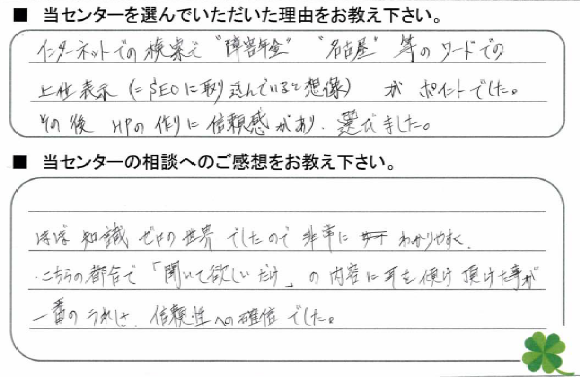 ■ 当センターを選んでいただいた理由をお教え下さい。
インターネットでの検索で "障害年金" "名古屋" 等のワードでの
上位表示 (=SEOに取り込んでいると想像) が ポイントでした。
その後 HPの作りに信頼感があり、選びました。
■ 当センターの相談へのご感想をお教え下さい。
ほぼ 知識 ゼロの世界 でしたので 非常に わかりやすく、
こちらの都合で 「聞いて欲しいだけ」 の 内容に耳を傾け 頂けた事が
一番のうれしさ、信頼性への確信 でした。